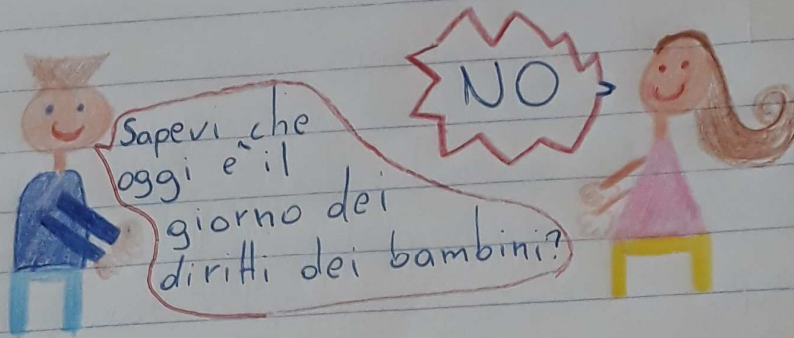 Sapevi che
oggi è il
giorno dei
diritti dei bambini?
NO